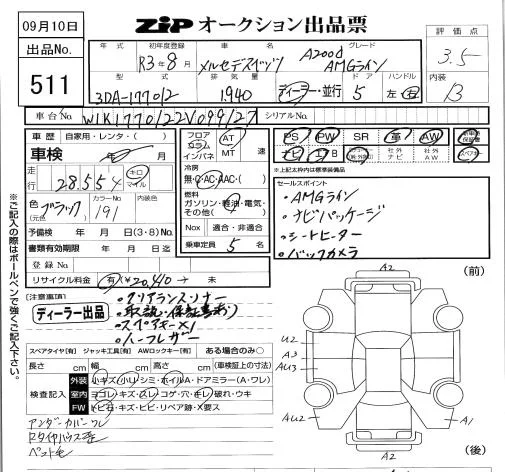 09月10日
ZiP オークション出品票
出品No.
511
年式 初年度登録 車名 グレード
R3年8月 メルセデスベンツ A200d AMGライン
型式 排気量 ドア ハンドル
3DA-177012 1,940 ディーラー・並行 5 左・右
評価点
3.5
内装
B
車台No. W1K1770122V099127 シリアルNo.
車歴 自家用・レンタ・( )
車検 年 月
走行 28,554 キロ マイル
色(元色) ブラック カラーNo. 191 内装色
予備検 年 月 日(3・8)No.
書類有効期限 年 月 日迄
登録No.
リサイクル料金 有(¥20,410)→ 未
フロア コラム インパネ AT MT 速
冷房
無・C・AC・AAC・( )
燃料
ガソリン・軽油・電気・その他( )
Nox 適合・非適合
乗車定員 5 名
PS PW SR 革 AW
ナビ 社外ナビ 社外AW
※上記太枠内は標準装備
セールスポイント
・AMGライン
・ナビパッケージ
・シートヒーター
・バックカメラ
(注意事項)
ディーラー出品
・クリアランスソナー
・取説・保証書有り
・スペアキー×1
・ハーフレザー
スペアタイヤ[有] ジャッキ工具[有] AWロックキー[有] ある場合のみ○
長さ cm 幅 cm 高さ cm (車検証上の寸法)
検査記入
外装 小キズ(小)・シミ・ホイルA・ドアミラー(A・ワレ)
室内 ヨゴレ・キズ・スレ・コゲ・穴・キレ・破れ・ウキ
FW トビ石・キズ・ヒビ・リペア跡・X要ス
アンダーカバーワレ
※ご記入の際はボールペンで強くご記入下さい。
A2
(前)
U2
A3
AU3
AU2
A1
A2
(後)